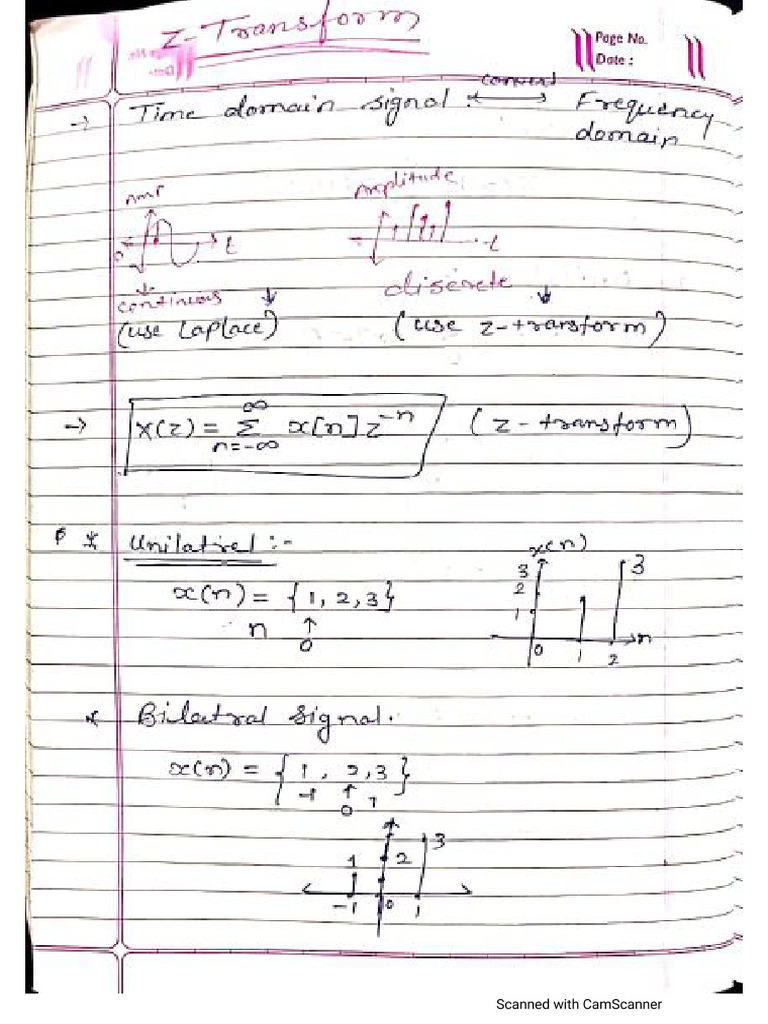 Z-Transform
Page No.
Date :
convert
→ Time domain signal ⟷ Frequency
domain
Amplitude
t
t
continuous
discrete
(use Laplace)
(use z-transform)
→ X(z) = Σ x[n] z⁻ⁿ (z-transform)
∞
n=-∞
* Unilatirel :-
x(n)
x(n) = {1, 2, 3}
n ↑
0
3
2
1
3
n
0 1 2
* Bilatral signal.
x(n) = { 1, 2, 3 }
-1 ↑ 1
0
3
1 2
-1 0 1
Scanned with CamScanner